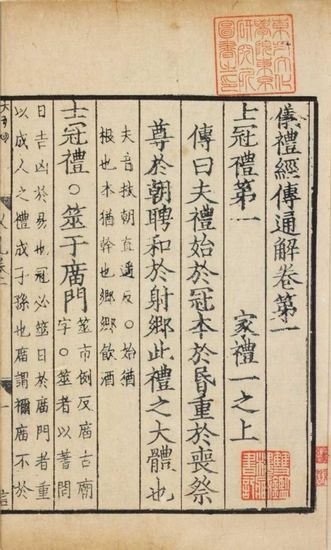 東方文化
學院東京
研究所
圖書之印
儀禮經傳通解卷第一
士冠禮第一　家禮一之上
傳曰夫禮始於冠本於昏重於喪祭
尊於朝聘和於射鄉此禮之大體也
夫音扶朝直遥反○始猶
根也本猶幹也鄉鄉飲酒
士冠禮○筮于庿門
筮市例反庿古廟
字○筮者以蓍問
日吉凶於易也冠必筮日於庿門者重
以成人之禮成子孫也庿謂禰庿不於